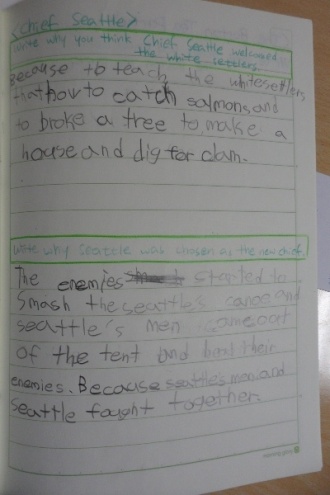 <Chief Seattle>
Write why you think Chief Seattle welcomed
the white settlers.
Because to teach the whitesettlers
thathow to catch salmons, and
to broke a tree to make a
house and dig for clam.
Write why Seattle was chosen as the new chief.
The enemies started to
Smash the seattle's canoe and
seattle's men came out
of the tent and beat their
enemies. Because seattle's men and
seattle fought together.